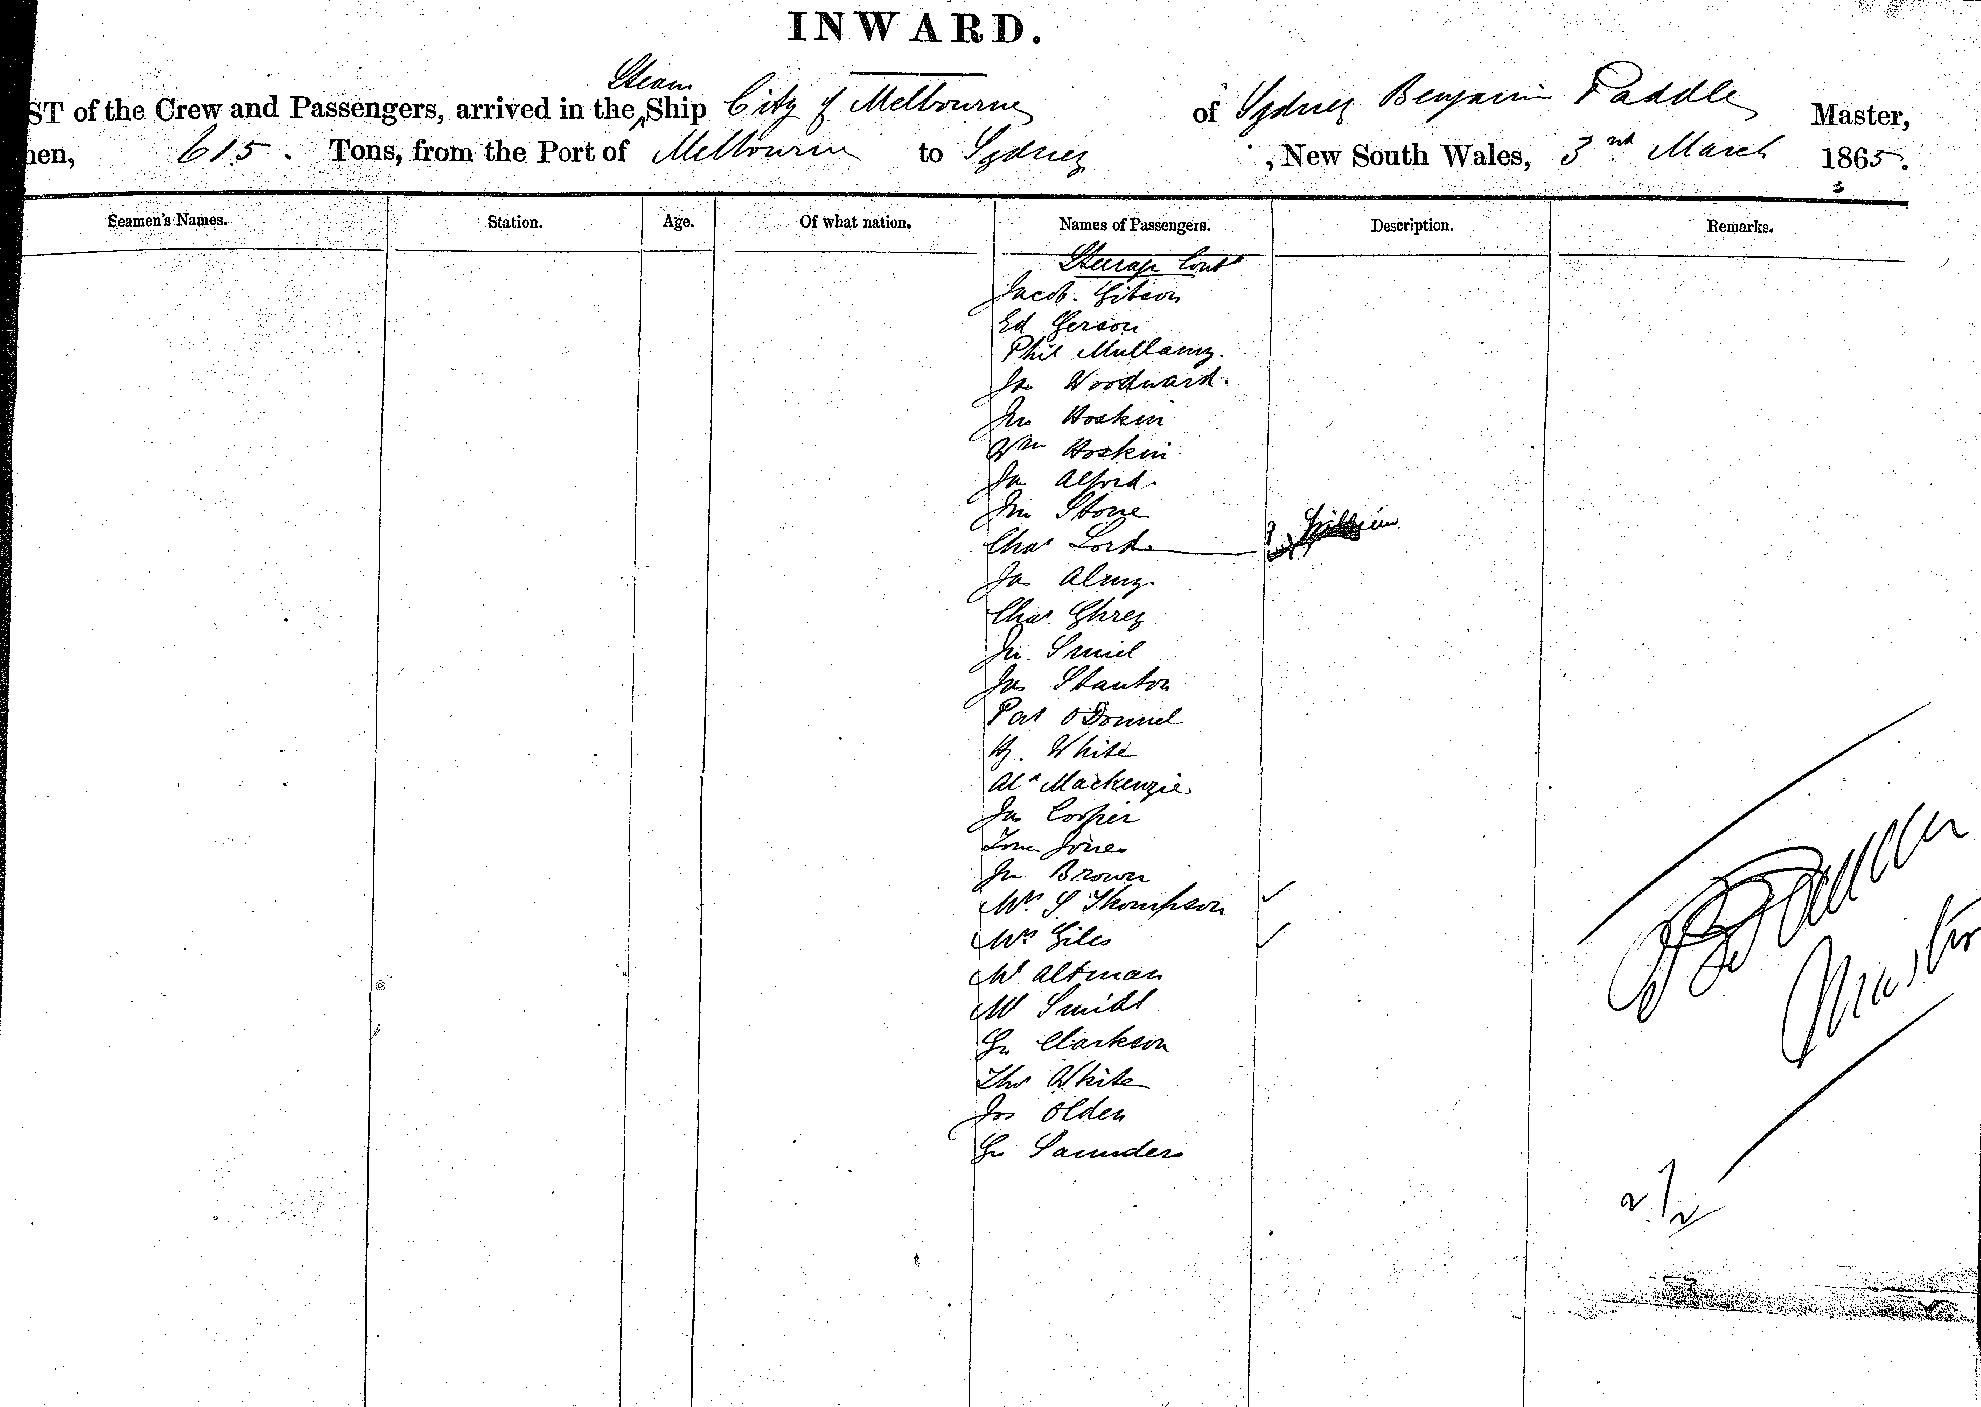 INWARD.
Steam
ST of the Crew and Passengers, arrived in the Ship City of Melbourne of Sydney Benjamin Paddle Master,
nen, 615. Tons, from the Port of Melbourne to Sydney, New South Wales, 3rd March 1865.
Seamen's Names. Station. Age. Of what nation. Names of Passengers. Description. Remarks.
Steerage Cont
Jacob. Gibson
Ed Gerson
Phil Mullany.
Jas Woodward.
Jno Hoskin
Wm Hoskin
Jas Alford.
Jno Stone
Chas Lord
Jas
Chas Ghrey
Jno
Jas Stanton
Pat O'Donnel
Hy. White
Alx Mackenzie
Jas Cooper
Tom Jones
Jno Brown
Mrs S Thompson ✓
Mrs Giles ✓
Mr Altman
Mr Smith
Geo Clarkson
Thos White
Jos Olden
Geo Saunders
Master